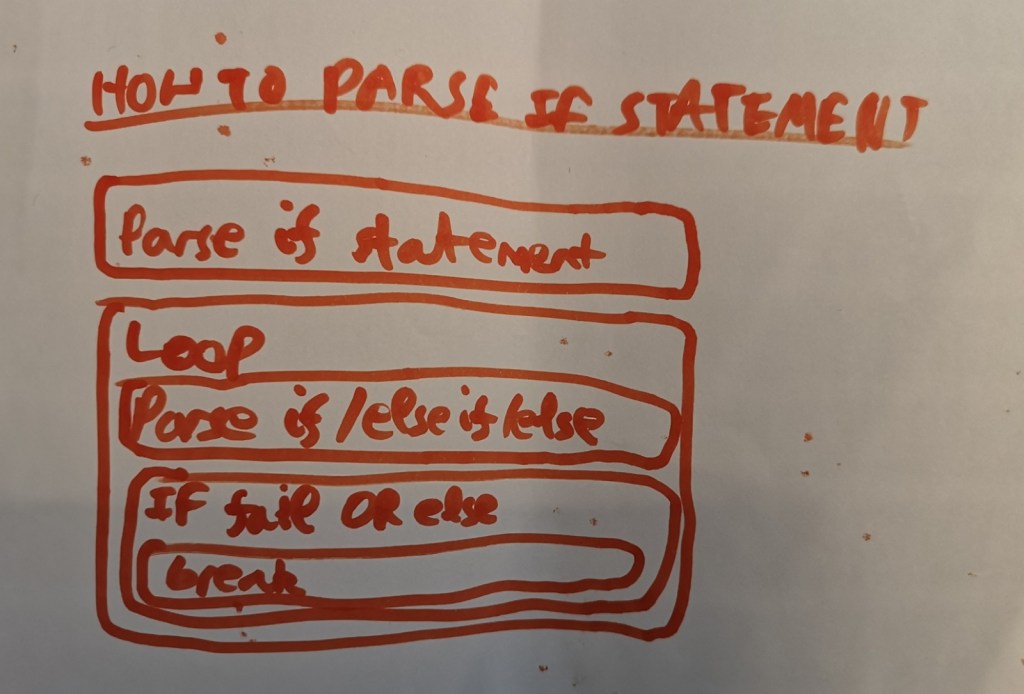 HOW TO PARSE IF STATEMENT
Parse if statement
Loop
Parse if/else if/else
IF fail OR else
break